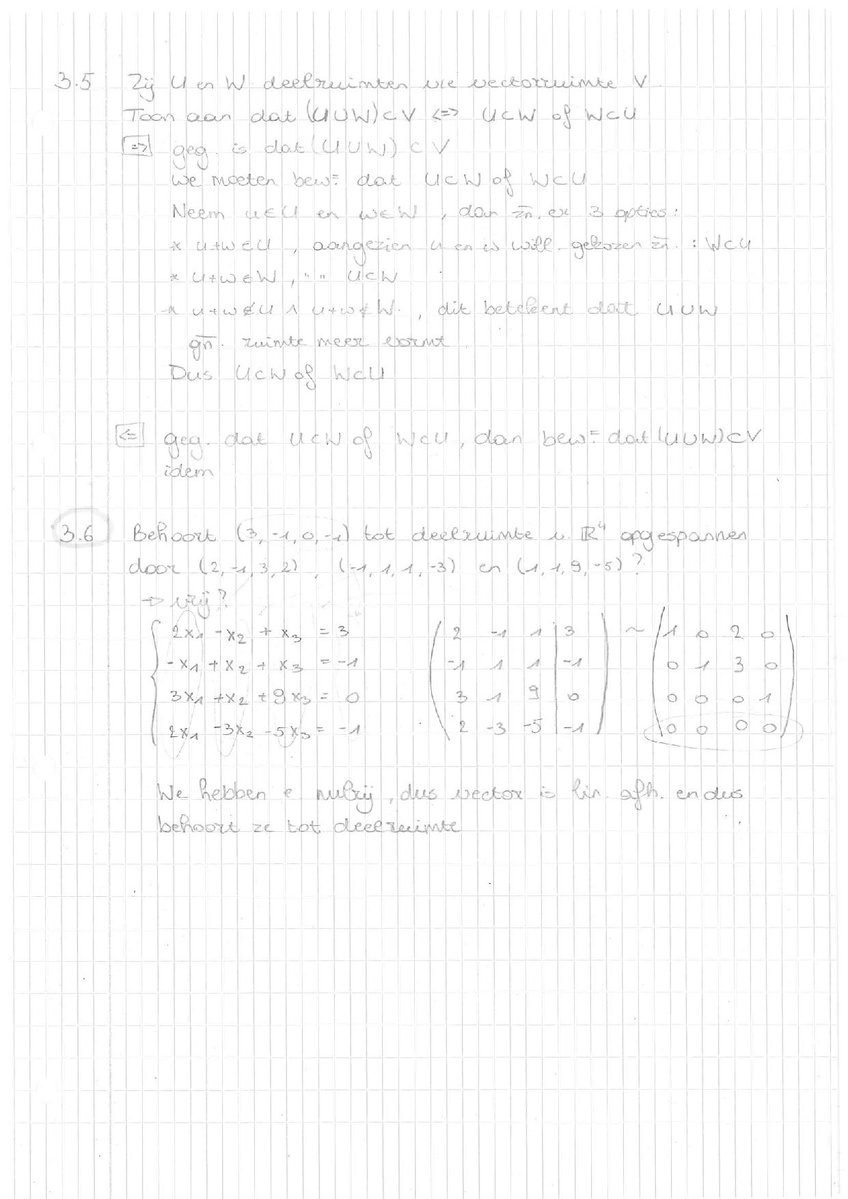 3.5 Zij U en W deelruimten vie vectorruimte V.
Toon aan dat (U∪W)⊂V <=> U⊂W of W⊂U
=> geg. is dat (U∪W) ⊂ V
We moeten bew= dat U⊂W of W⊂U
Neem u∈U en w∈W, dan zn. er 3 opties:
* u+w∈U, aangezien u en w will. gekozen zn. : W⊂U
* u+w∈W, " " U⊂W
* u+w∉U ∧ u+w∉W., dit betekent dat U∪W
gn. ruimte meer vormt.
Dus U⊂W of W⊂U
<= geg. dat U⊂W of W⊂U, dan bew= dat (U∪W)⊂V
idem
3.6 Behoort (3,-1,0,-1) tot deelruimte v. ℝ⁴ opgespannen
door (2,-1,3,2), (-1,1,1,-3) en (1,1,9,-5)?
→ vrij?
2x₁ -x₂ + x₃ = 3 ( 2 -1 1 | 3 ) ~ ( 1 0 2 0 )
-x₁ + x₂ + x₃ = -1 -1 1 1 | -1 0 1 3 0
3x₁ +x₂ +9x₃ = 0 3 1 9 | 0 0 0 0 1
2x₁ -3x₂ -5x₃ = -1 2 -3 -5 | -1 0 0 0 0
We hebben e nulrij, dus vector is lin. afh. en dus
behoort ze tot deelruimte